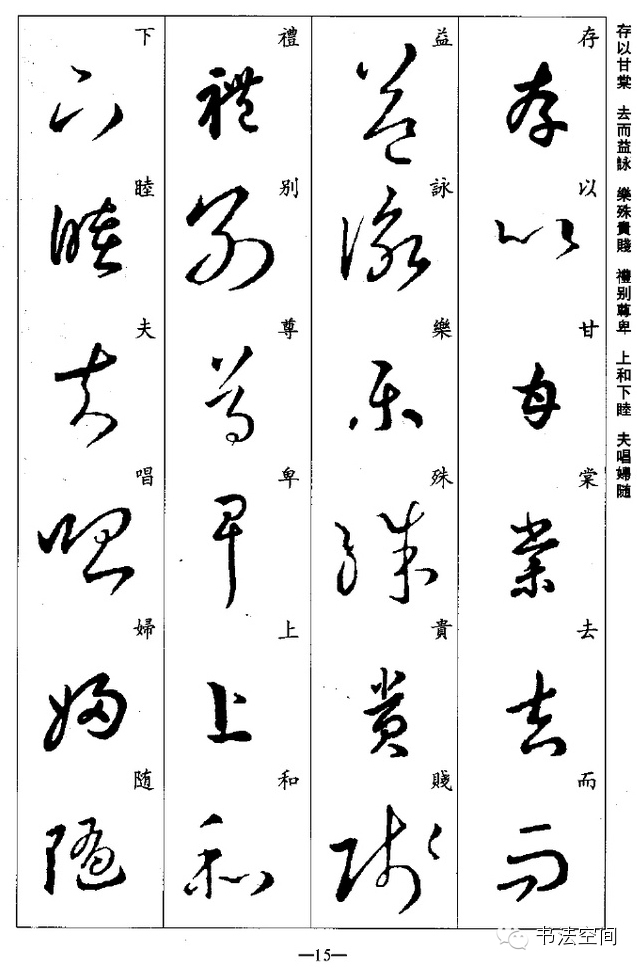 存以甘棠 去而益詠 樂殊貴賤 禮别尊卑 上和下睦 夫唱婦随
存以甘棠去而
益詠樂殊貴賤
禮别尊卑上和
下睦夫唱婦随
—15—
书法空间